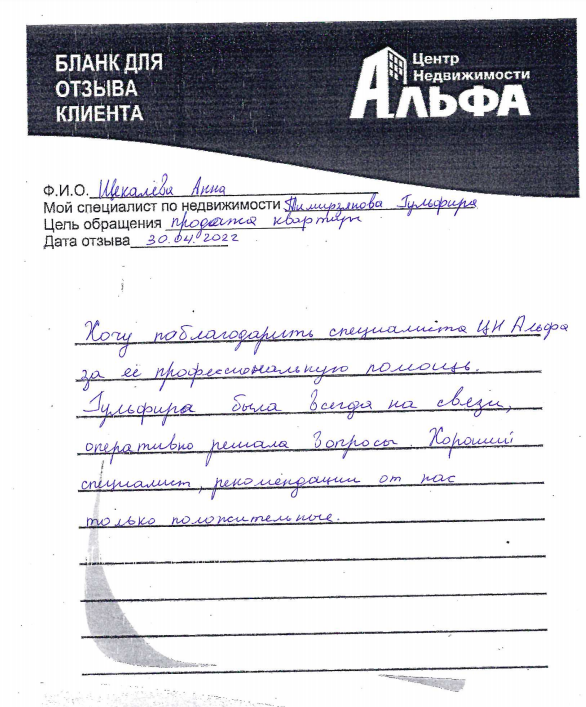 БЛАНК ДЛЯ
ОТЗЫВА
КЛИЕНТА
Центр
Недвижимости
АЛЬФА
Ф.И.О. Щекалёва Анна
Мой специалист по недвижимости Гульфира
Цель обращения продажа квартиры
Дата отзыва 30.04.2022
Хочу поблагодарить специалиста ЦН Альфа
за её профессиональную помощь.
Гульфира была всегда на связи,
оперативно решала вопросы. Хороший
специалист, рекомендации от нас
только положительные.